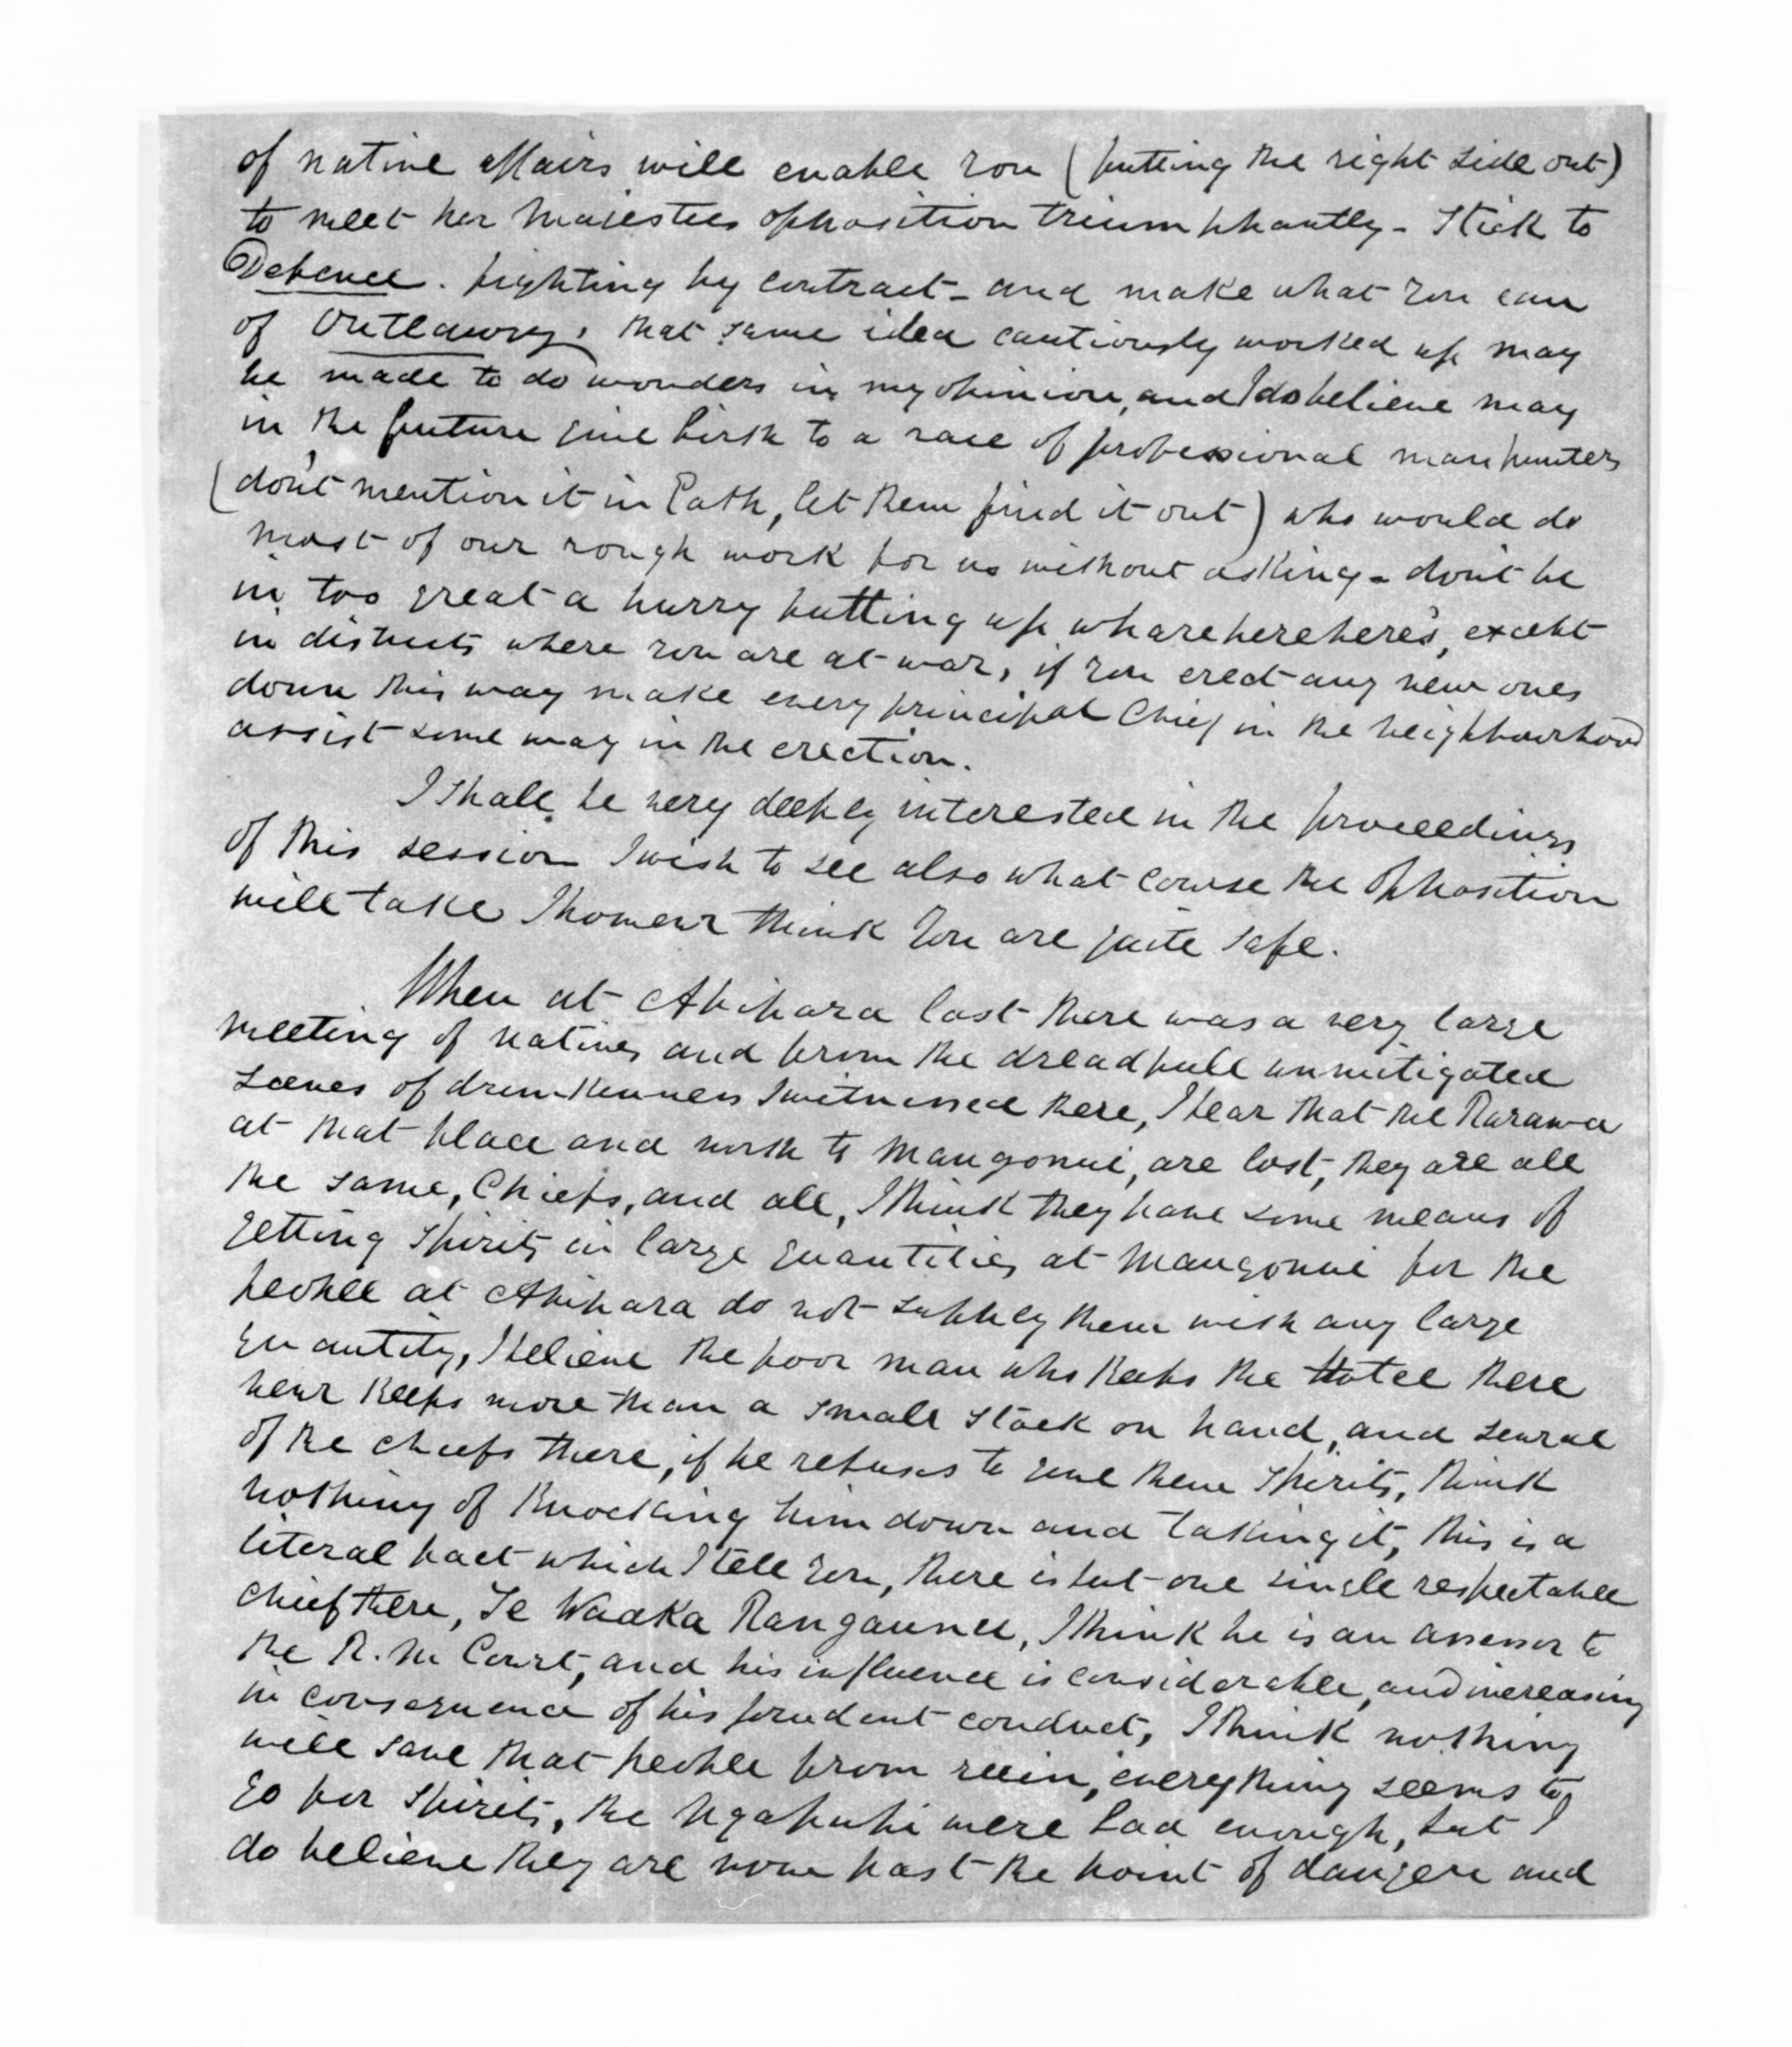 of native affairs will enable you (putting the right side out)
to meet her Majesties opposition triumphantly - Stick to
Defence. fighting by contract - and make what you can
of Outlawry, that same idea cautiously worked up may
be made to do wonders in my opinion, and I do believe may
in the future give birth to a race of professional man hunters
(don't mention it in Path, let them find it out) who would do
most of our rough work for us without asking - don't be
in too great a hurry putting up wharehereheres, except
in districts where you are at war, if you erect any new ones
down this way make every principal Chief in the neighbourhood
assist some way in the erection.
I shall be very deeply interested in the proceedings
of this session I wish to see also what course the Opposition
will take I however think you are quite safe.
When at Ahipara last there was a very large
meeting of natives and from the dreadfull unmitigated
scenes of drunkenness I witnessed there, I fear that the Rarawa
at that place and north to Mangonui, are lost, they are all
the same, Chiefs, and all, I think they have some means of
getting spirits in large quantities at Mangonui for the
people at Ahipara do not supply them with any large
quantity, I believe the poor man who keeps the Hotel there
never keeps more than a small stock on hand, and several
of the chiefs there, if he refuses to give them spirits, think
nothing of knocking him down and taking it, this is a
literal fact which I tell you, there is but one single respectable
chief there, Te Waaka Rangaunu, I think he is an assessor to
the R. M Court, and his influence is considerable, and increasing
in consequence of his prudent conduct, I think nothing
will save that people from ruin, everything seems to
go for spirits, the Ngapuhi were bad enough, but I
do believe they are now past the point of danger and